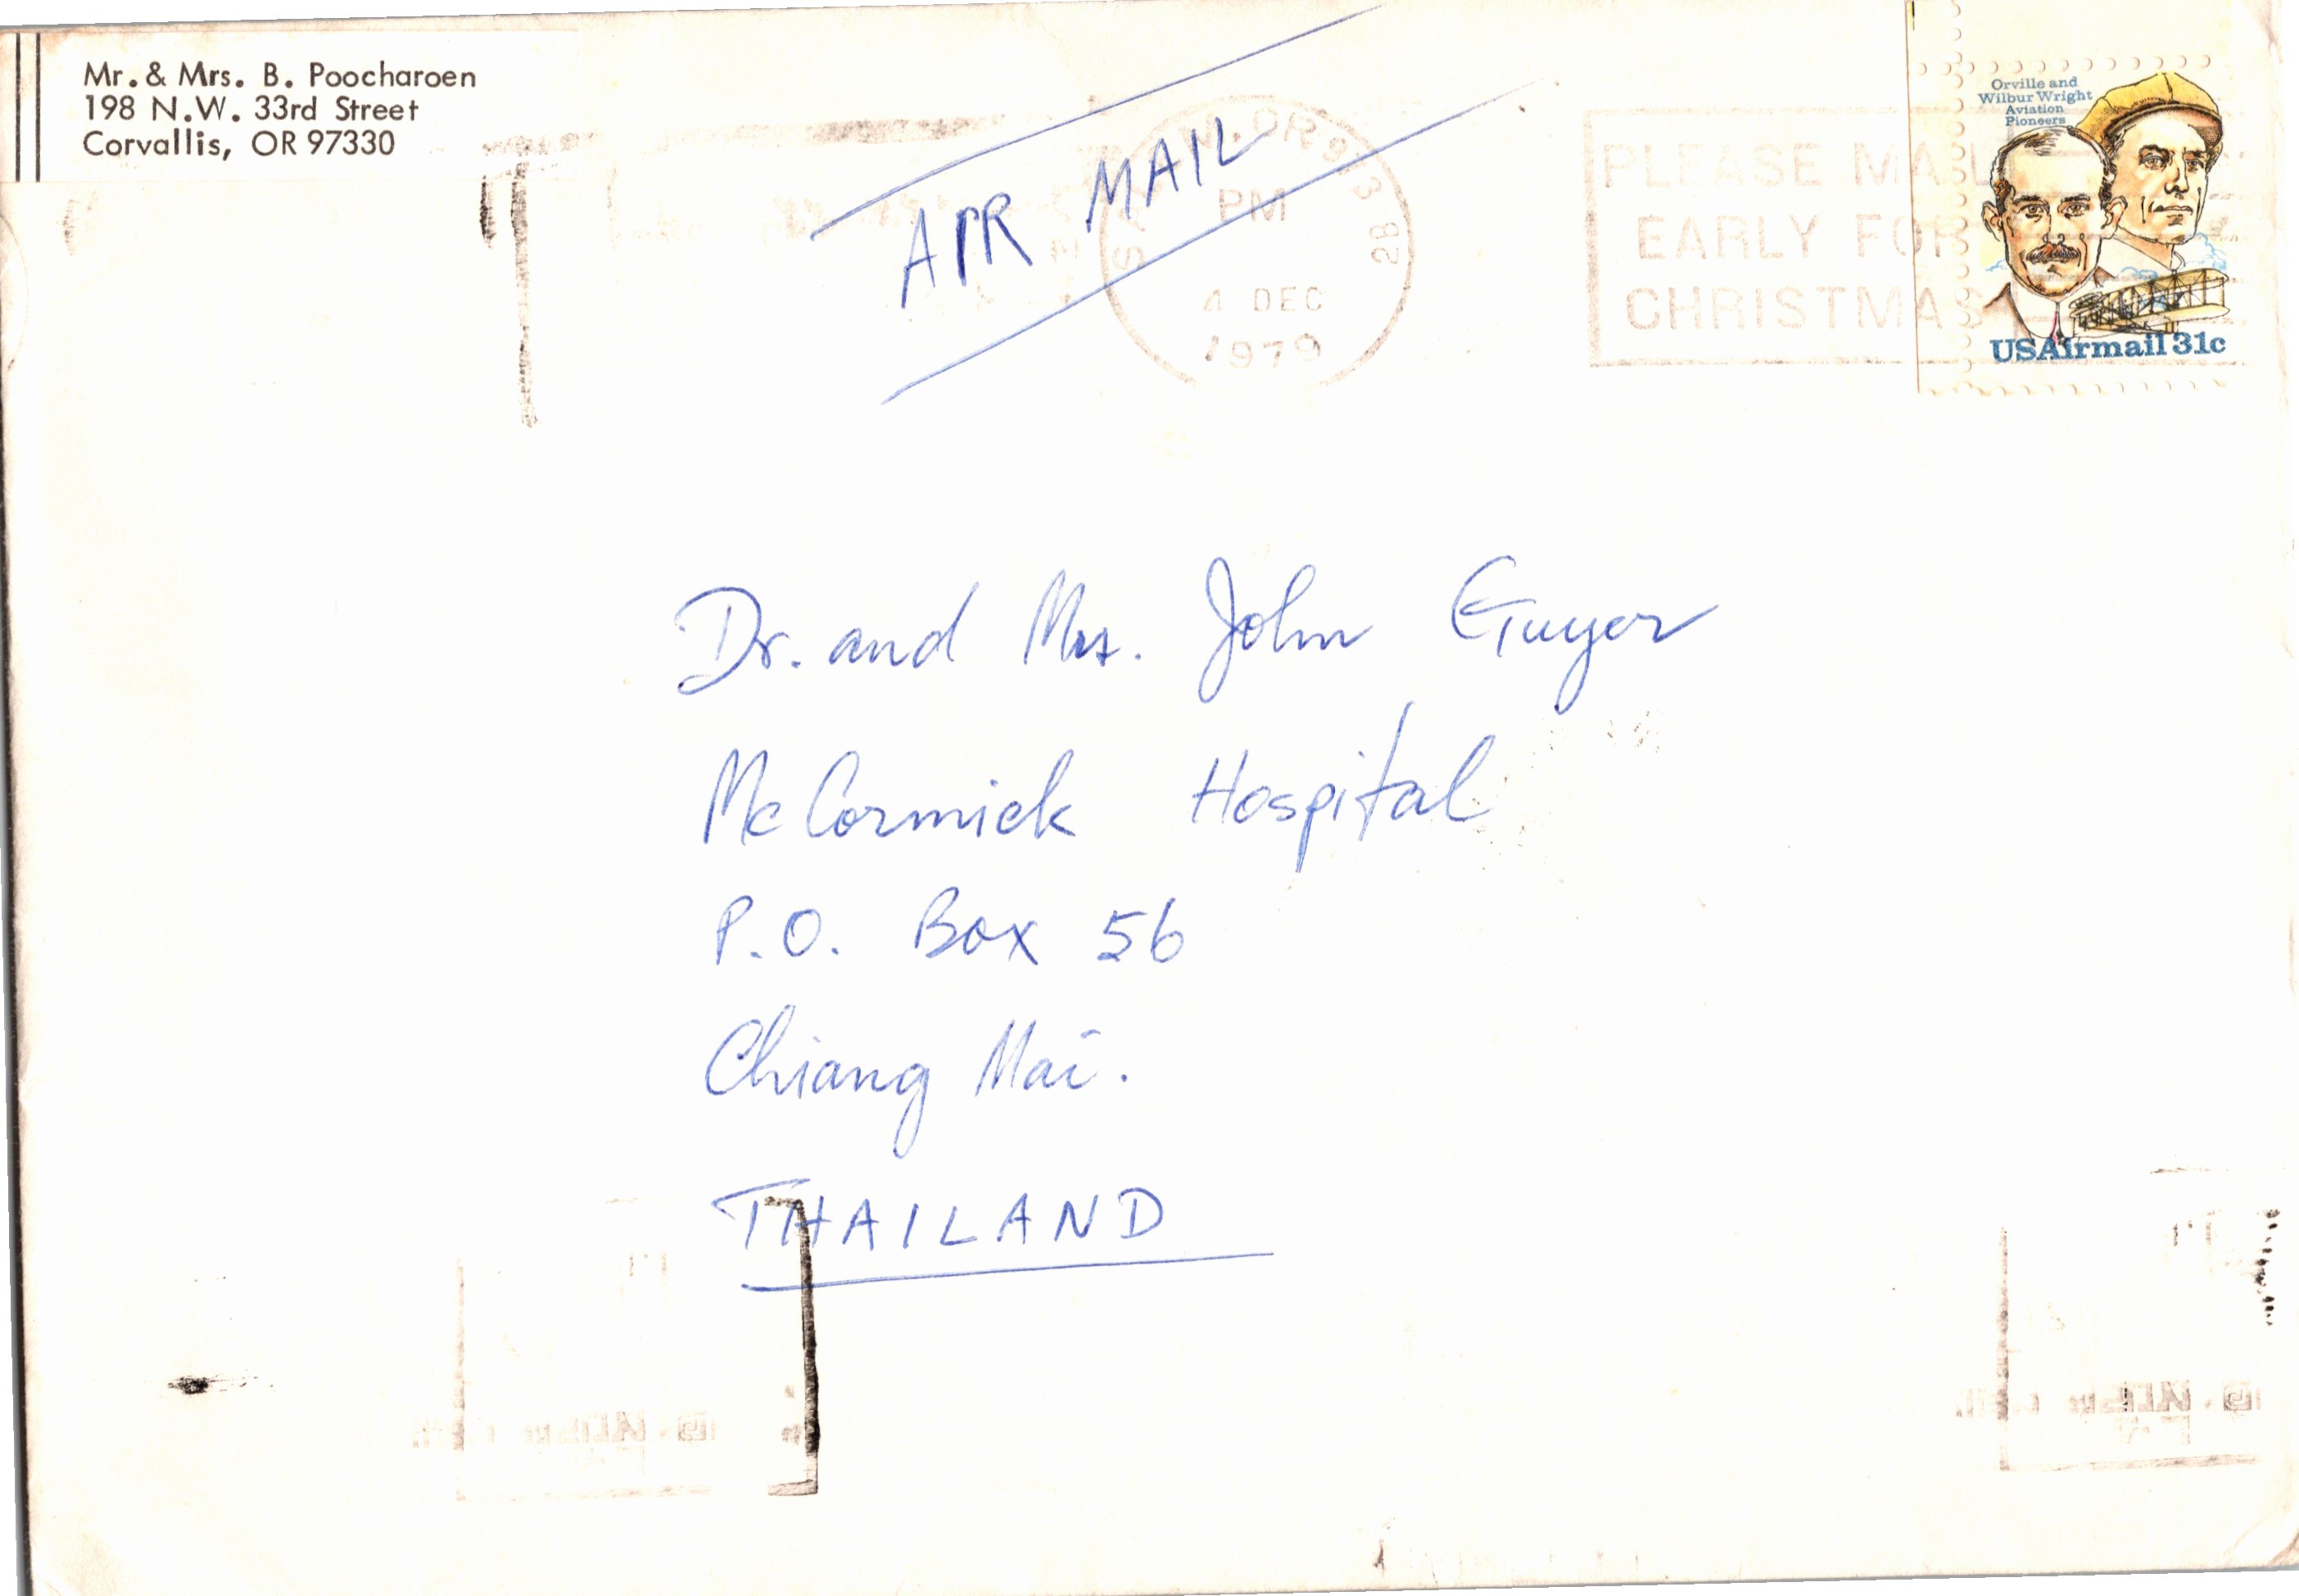 Mr. & Mrs. B. Poocharoen
198 N.W. 33rd Street
Corvallis, OR 97330
AIR MAIL
PM
4 DEC
1979
PLEASE MAIL
EARLY FOR
CHRISTMAS
Orville and
Wilbur Wright
Aviation
Pioneers
USAirmail 31c
Dr. and Mrs. John Guyer
McCormick Hospital
P.O. Box 56
Chiang Mai.
THAILAND